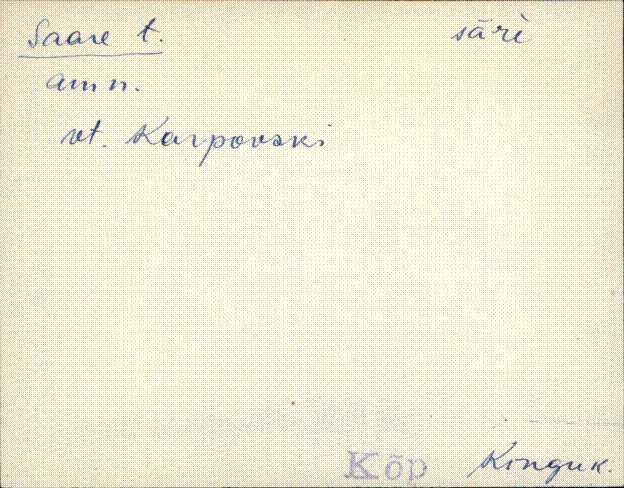 Saare t. sārè
am n.
vt. Karpovski
Kõp Kinguk.